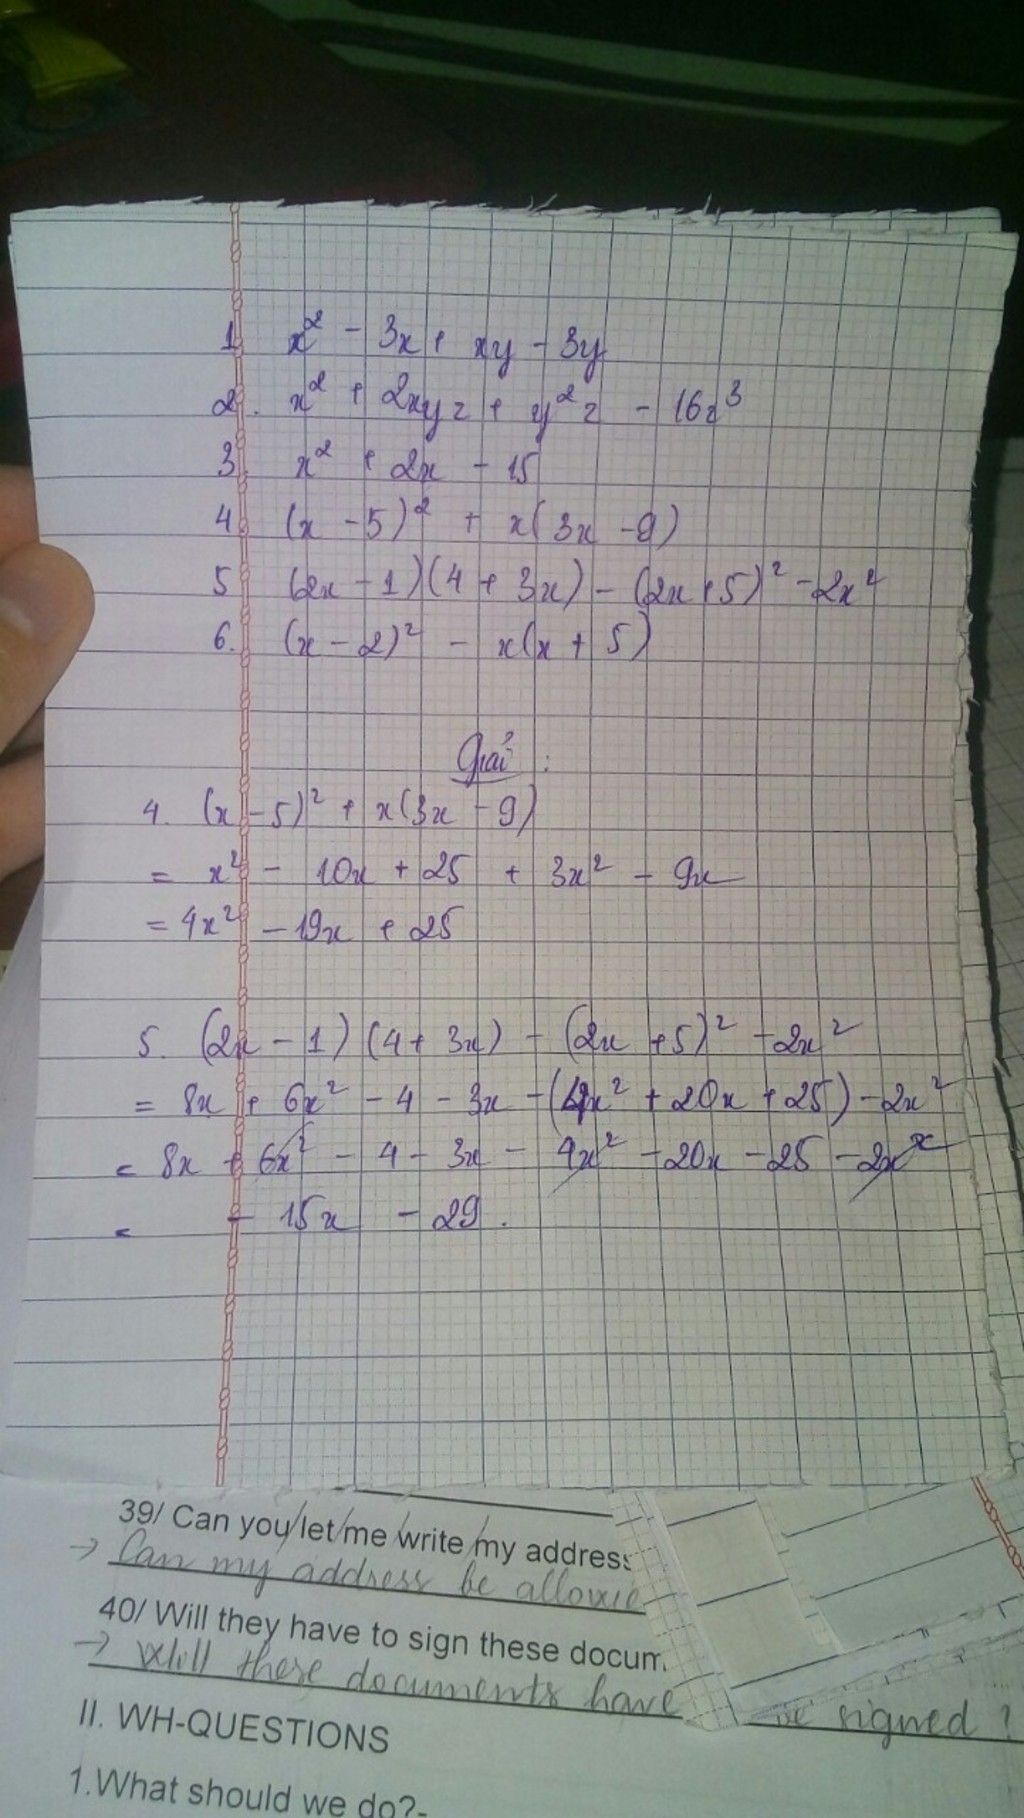 1. x² - 3x + xy - 3y
2. x² + 2xyz + y²z - 16z³
3. x² + 2x - 15
4. (x - 5)² + x(3x - 9)
5. (2x - 1)(4 + 3x) - (2x + 5)² - 2x²
6. (x - 2)² - x(x + 5)
Giải :
4. (x - 5)² + x(3x - 9)
= x² - 10x + 25 + 3x² - 9x
= 4x² - 19x + 25
5. (2x - 1)(4 + 3x) - (2x + 5)² - 2x²
= 8x + 6x² - 4 - 3x - (4x² + 20x + 25) - 2x²
= 8x + 6x² - 4 - 3x - 4x² - 20x - 25 - 2x²
= - 15x - 29.
39/ Can you/let/me/write/my address
→ Can my address be allowe
40/ Will they have to sign these docum
→ Will these documents have be signed ?
II. WH-QUESTIONS
1.What should we do?-